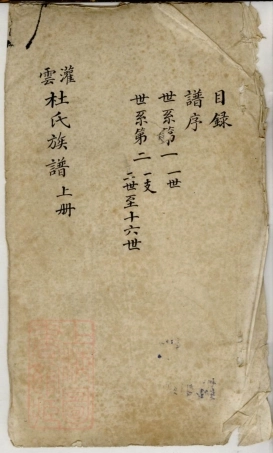 目录
譜序
世系第一 一世
世系第二 一支
二世至十六世
灌雲杜氏族譜上册